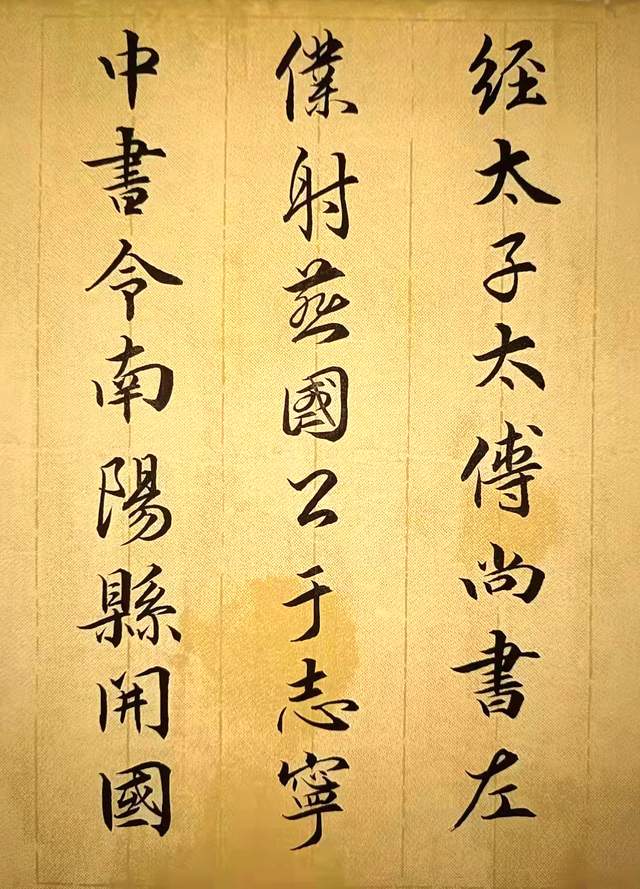 经太子太傅尚書左
僕射燕國公于志寧
中書令南陽縣開國